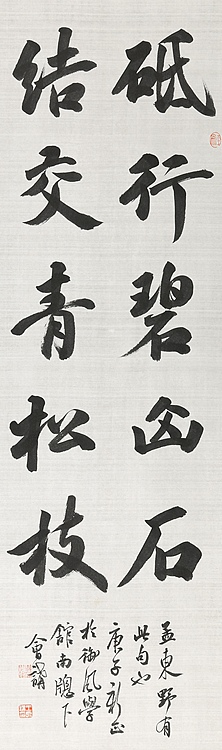 砥行碧山石
結交青松枝
孟東野有
此句也
庚子新正
於御風學
館南窗下